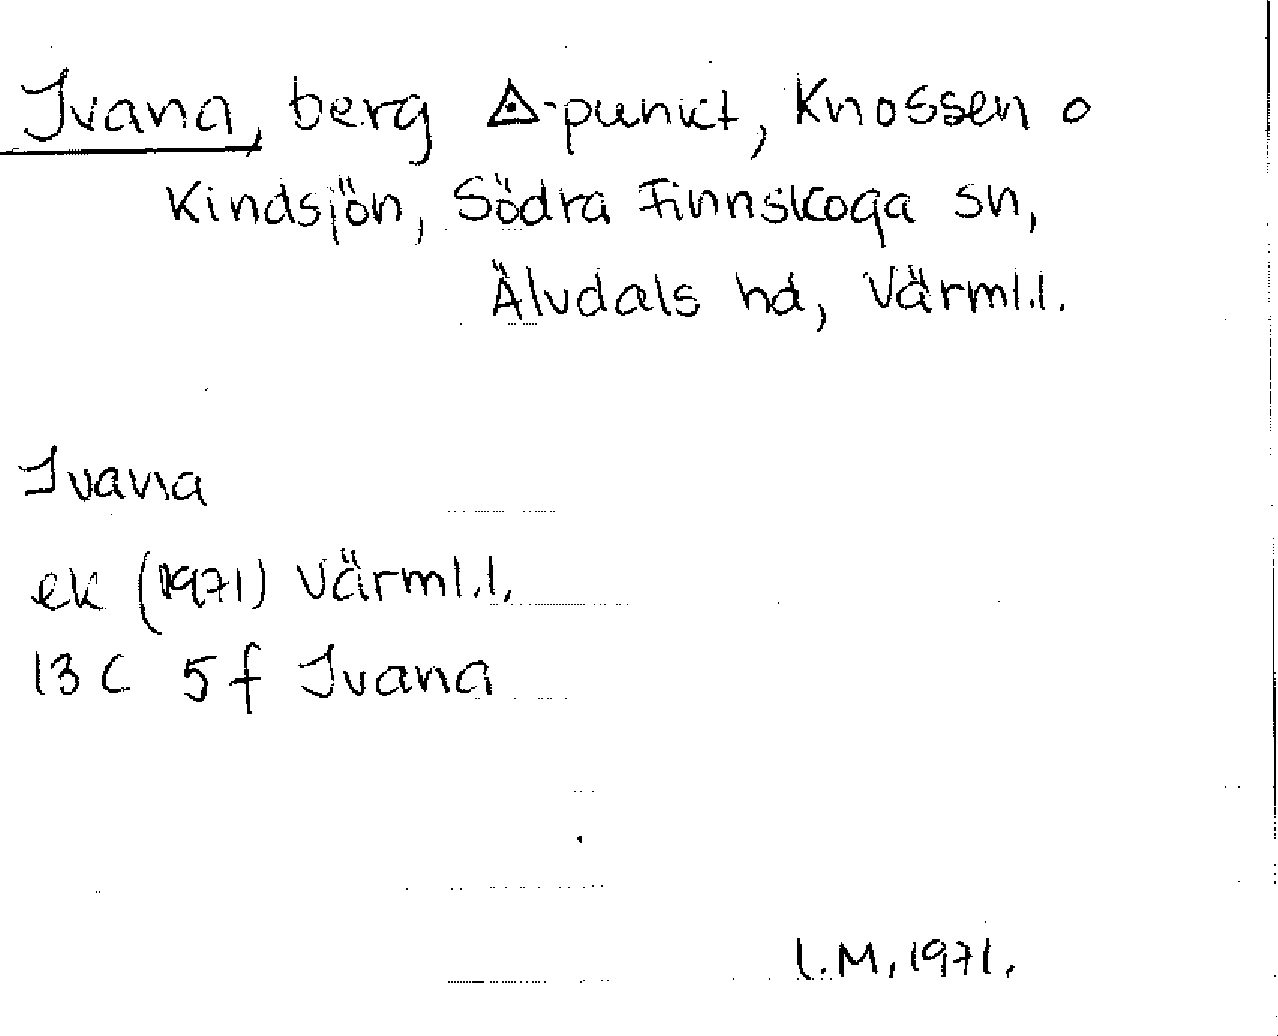 Ivana, berg △-punkt, Knossen o
Kindsjön, Södra Finnskoga sn,
Älvdals hd, Värml.l.
Ivana
ek (1971) Värml.l.
13 C 5 f Ivana
l.M. 1971.